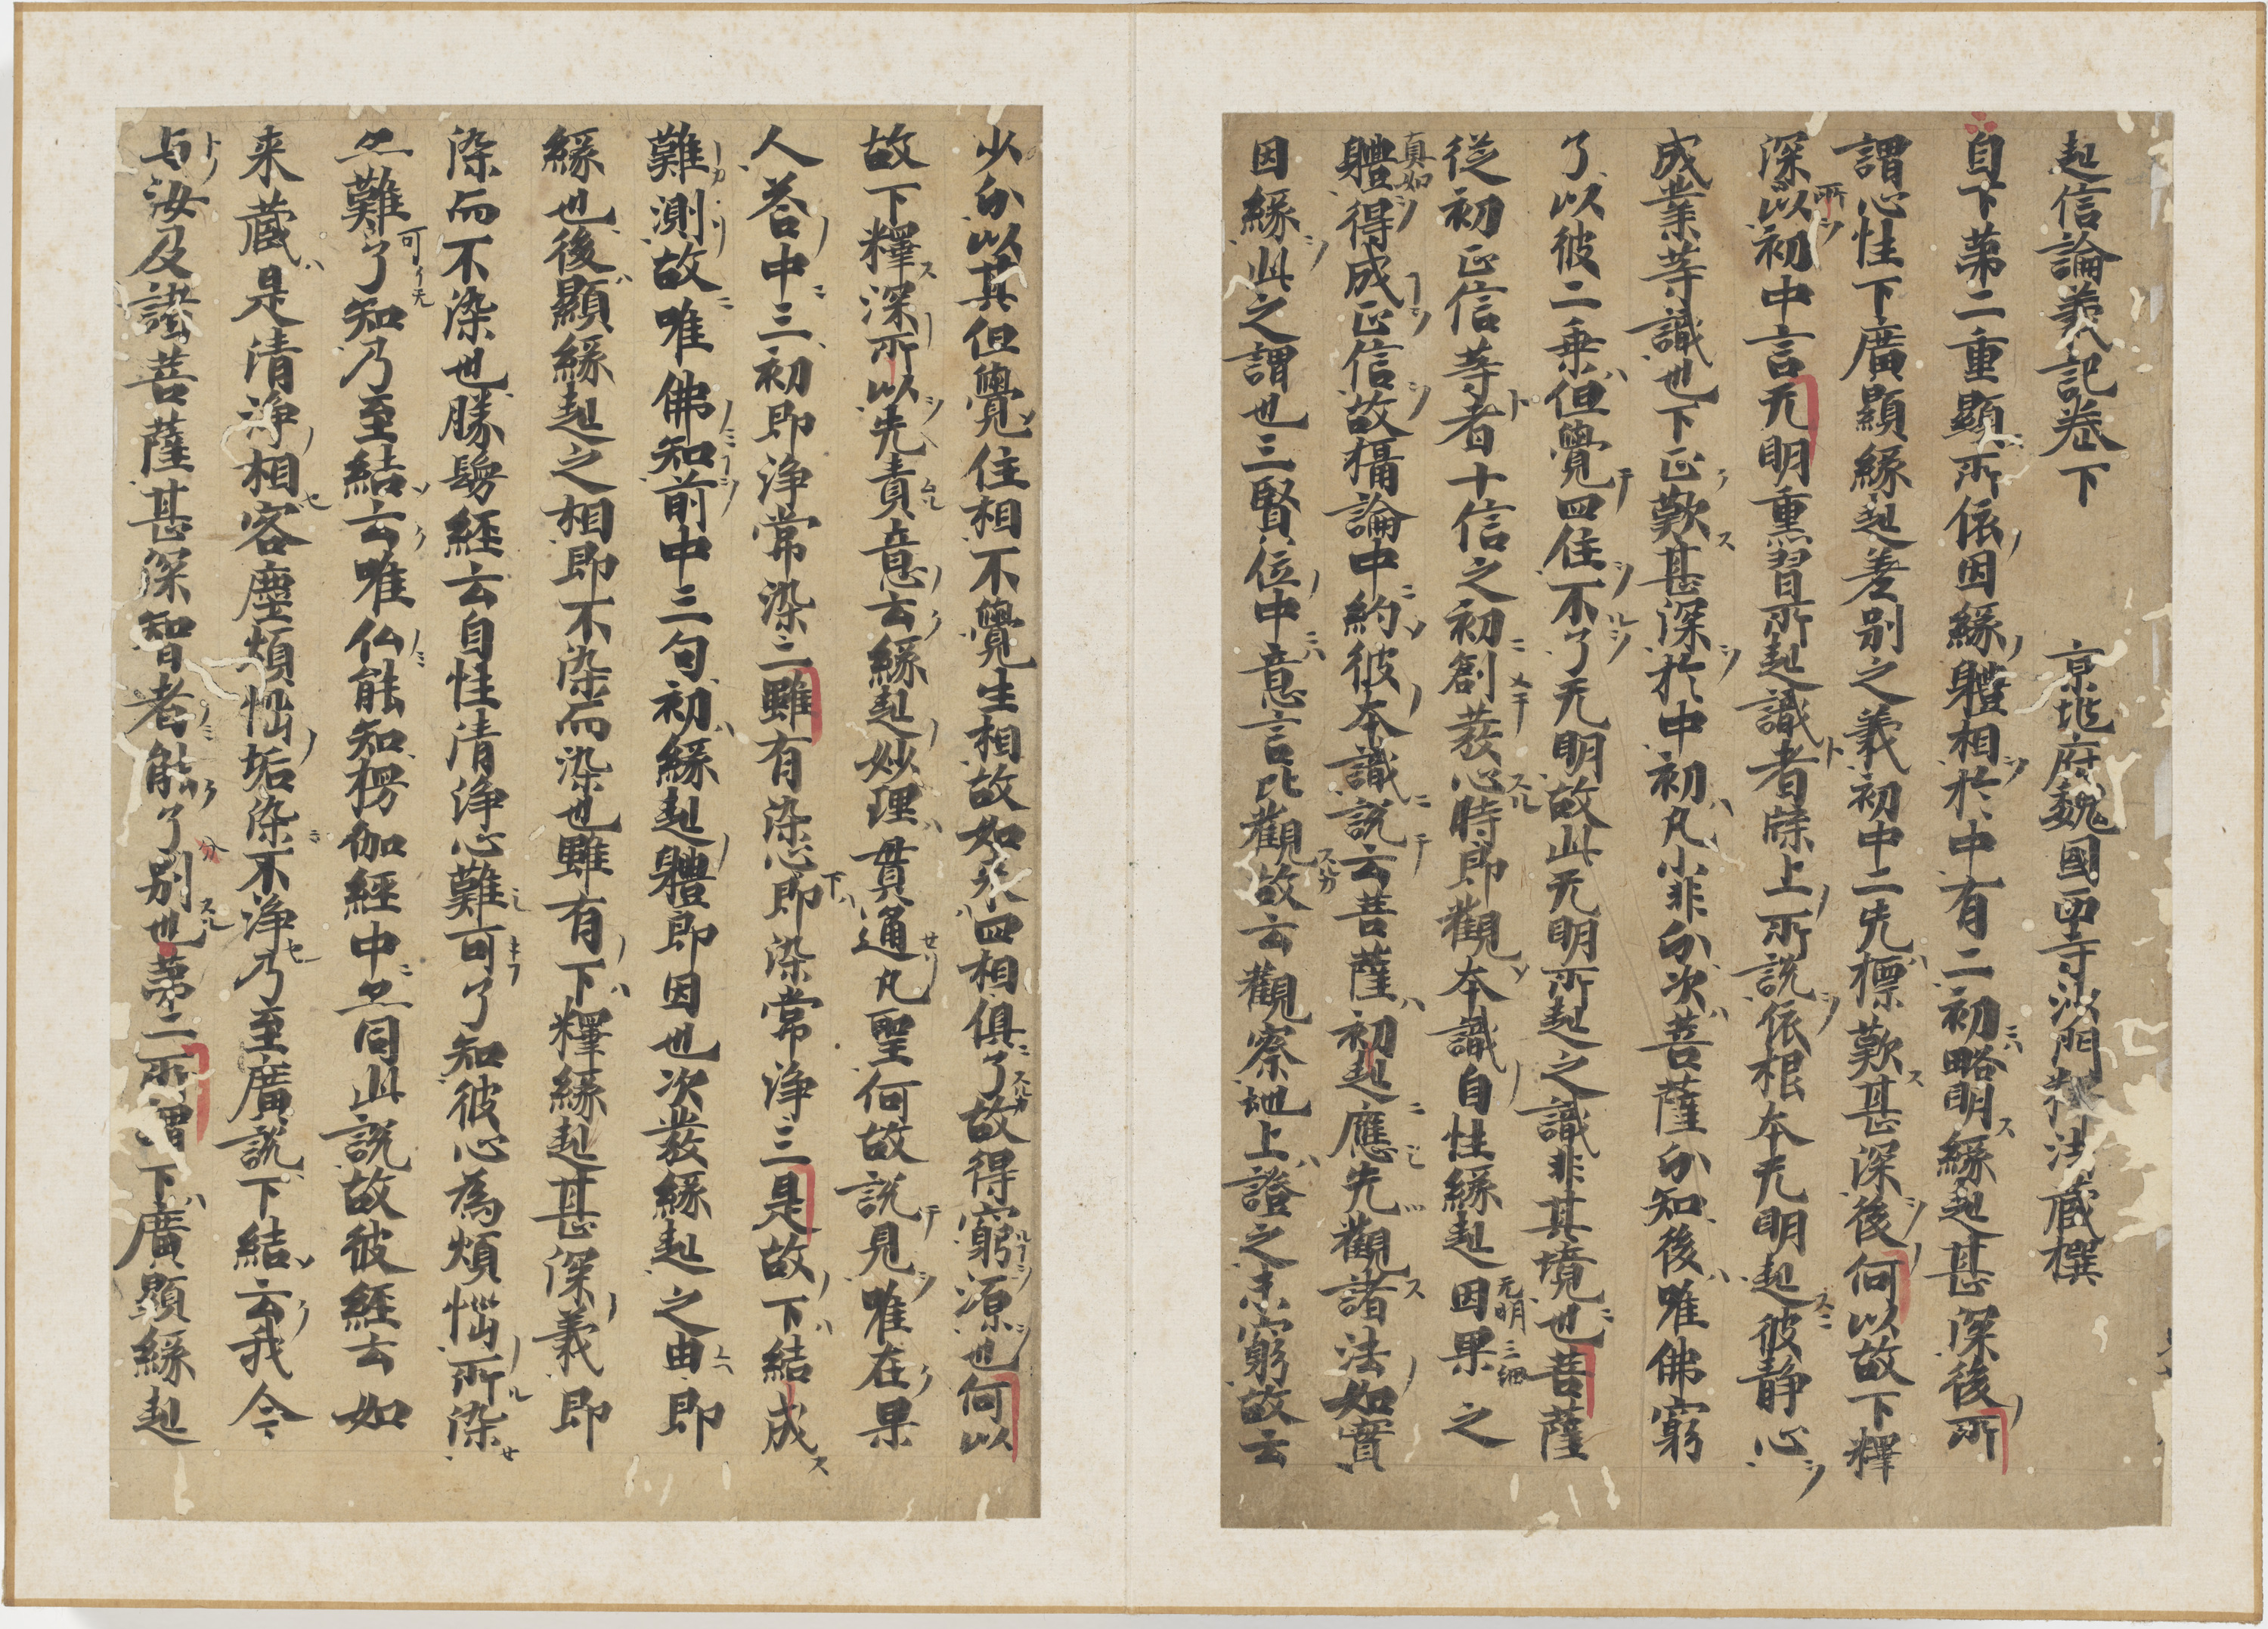 起信論義記卷下　京地府魏國西寺沙門釋法藏撰
自下第二重顯所依因緣體相於中有二初略明緣起甚深後所
謂心性下廣顯緣起差別之義初中二先標歎甚深後何以故下釋
深以初中言无明熏習所起識者牒上所說依根本无明起彼靜心
成業等識也下正歎甚深於中初凡小非分次菩薩分知後唯佛窮
了以彼二乗但覺四住不了无明故此无明所起之識非其境也菩薩
從初正信等者十信之初創發心時即觀本識自性緣起因果之
體得成正信故攝論中約彼本識說云菩薩初起應先觀諸法如實
因緣此之謂也三賢位中意言比觀故云觀察地上證之未窮故云
少分以其但覺住相不覺生相故如來四相俱了故得窮源也何以
故下釋深所以先責意云緣起妙理貫通凡聖何故說見唯在果
人荅中三初即淨常染二雖有染心即染常淨三是故下結成
難測故唯佛知前中三句初緣起體即因也次發緣起之由即
緣也後顯緣起之相即不染而染也雖有下釋緣起甚深義即
染而不染也勝鬘経云自性清淨心難可了知彼心為煩惱所染
亦難了知乃至結云唯仏能知楞伽經中亦同此說故彼経云如
来藏是清淨相客塵煩惱垢染不淨乃至廣說下結云我今
与汝及諸菩薩甚深智者能了別也第二所謂下廣顯緣起